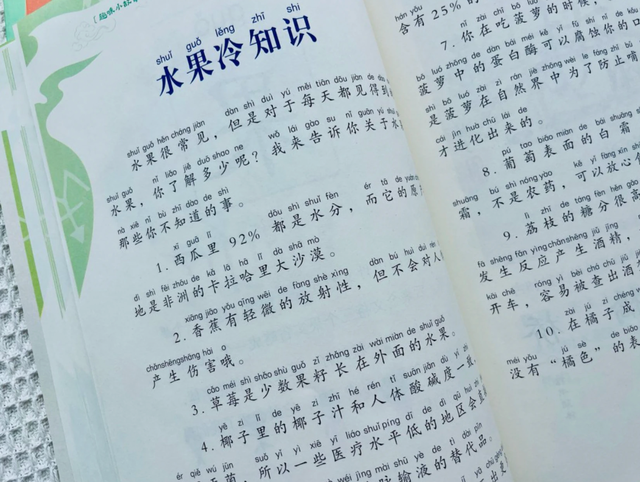 趣味小
shuǐ guǒ lěng zhī shi
水果冷知识
shuǐ guǒ hěn cháng jiàn dàn shì duì yú měi tiān dōu jiàn de
水果很常见，但是对于每天都见得到
shuǐ guǒ nǐ liǎo jiě duō shao ne wǒ lái gào su nǐ guān yú shuǐ
水果，你了解多少呢？我来告诉你关于水
nà xiē nǐ bù zhī dào de shì
那些你不知道的事。
xī guā lǐ dōu shì shuǐ fèn ér tā de yuán
1. 西瓜里 92% 都是水分，而它的原
dì shì fēi zhōu de kǎ lā hā lǐ dà shā mò
地是非洲的卡拉哈里大沙漠。
xiāng jiāo yǒu qīng wēi de fàng shè xìng dàn bú huì duì
2. 香蕉有轻微的放射性，但不会对人
chǎn shēng shāng hài o
产生伤害哦。
cǎo méi shì shǎo shù guǒ zǐ zhǎng zài wài miàn de shuǐ guǒ
3. 草莓是少数果籽长在外面的水果。
yē zi lǐ de yē zi zhī hé rén tǐ suān jiǎn dù yī
4. 椰子里的椰子汁和人体酸碱度一
ér qiě wú jūn suǒ yǐ yì xiē yī liáo shuǐ píng dī de dì qū huì
所以一些医疗水平低的地区会
脉输液的替代品。
含有 25% 的
7. 你在吃菠萝的时候，
菠萝中的蛋白酶可以腐蚀你的
是菠萝在自然界中为了防止啃
cái jìn huà chū lái de
才进化出来的。
pú tao biǎo miàn de bái shuāng
8. 葡萄表面的白霜
bú shì nóng yào kě yǐ fàng xīn
霜，不是农药，可以放心
lì zhī de táng fèn hěn gāo
9. 荔枝的糖分很高
fā shēng fǎn yìng chǎn shēng jiǔ jīng
发生反应产生酒精，
kāi chē róng yì bèi chá chū jiǔ
开车，容易被查出酒
zài jú zi chéng
10. 在橘子成
méi yǒu jú sè de
没有“橘色”的表